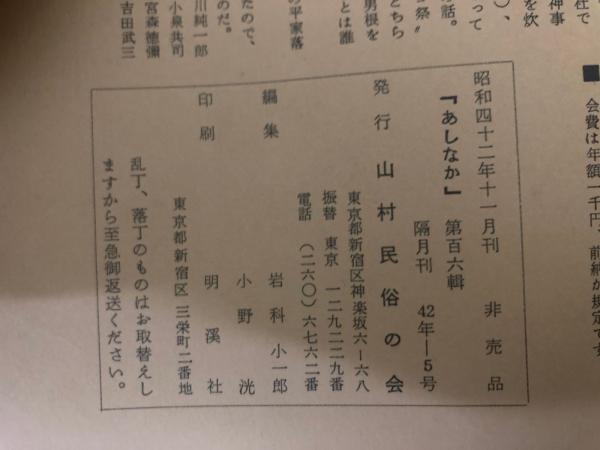 ■会費は年額一千円、前納が規定です
昭和四十二年十一月刊 非売品
『あしなか』 第百六輯
隔月刊 42年—5号
発行 山村民俗の会
東京都新宿区神楽坂六—六八
振替 東京 一二九二二九番
電話 (二六〇)六七六二番
編集 岩科小一郎
小野 洸
印刷 明溪社
東京都新宿区三栄町二番地
乱丁、落丁のものはお取替えし
ますから至急御返送ください。
社で
神事
を炊
)、
って
話。
祭”
どちら
男根を
とは誰
の平家落
たので、
のだ。
川純一郎
小泉共司
宮森徳彌
吉田武三